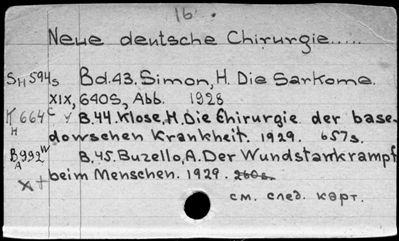 16.
Neue deutsche Chirurgie.....
SH 594s Bd.43. Simon, H. Die Sarkome.
XIX, 640S., Abb. 1928
K 664c B.44. Klose, H. Die Chirurgie der base-
H dowschen Krankheit. 1929. 657s.
B 992w B.45. Buzello, A. Der Wundstarrkrampf
A beim Menschen. 1929. 260s.
x+
см. след. карт.